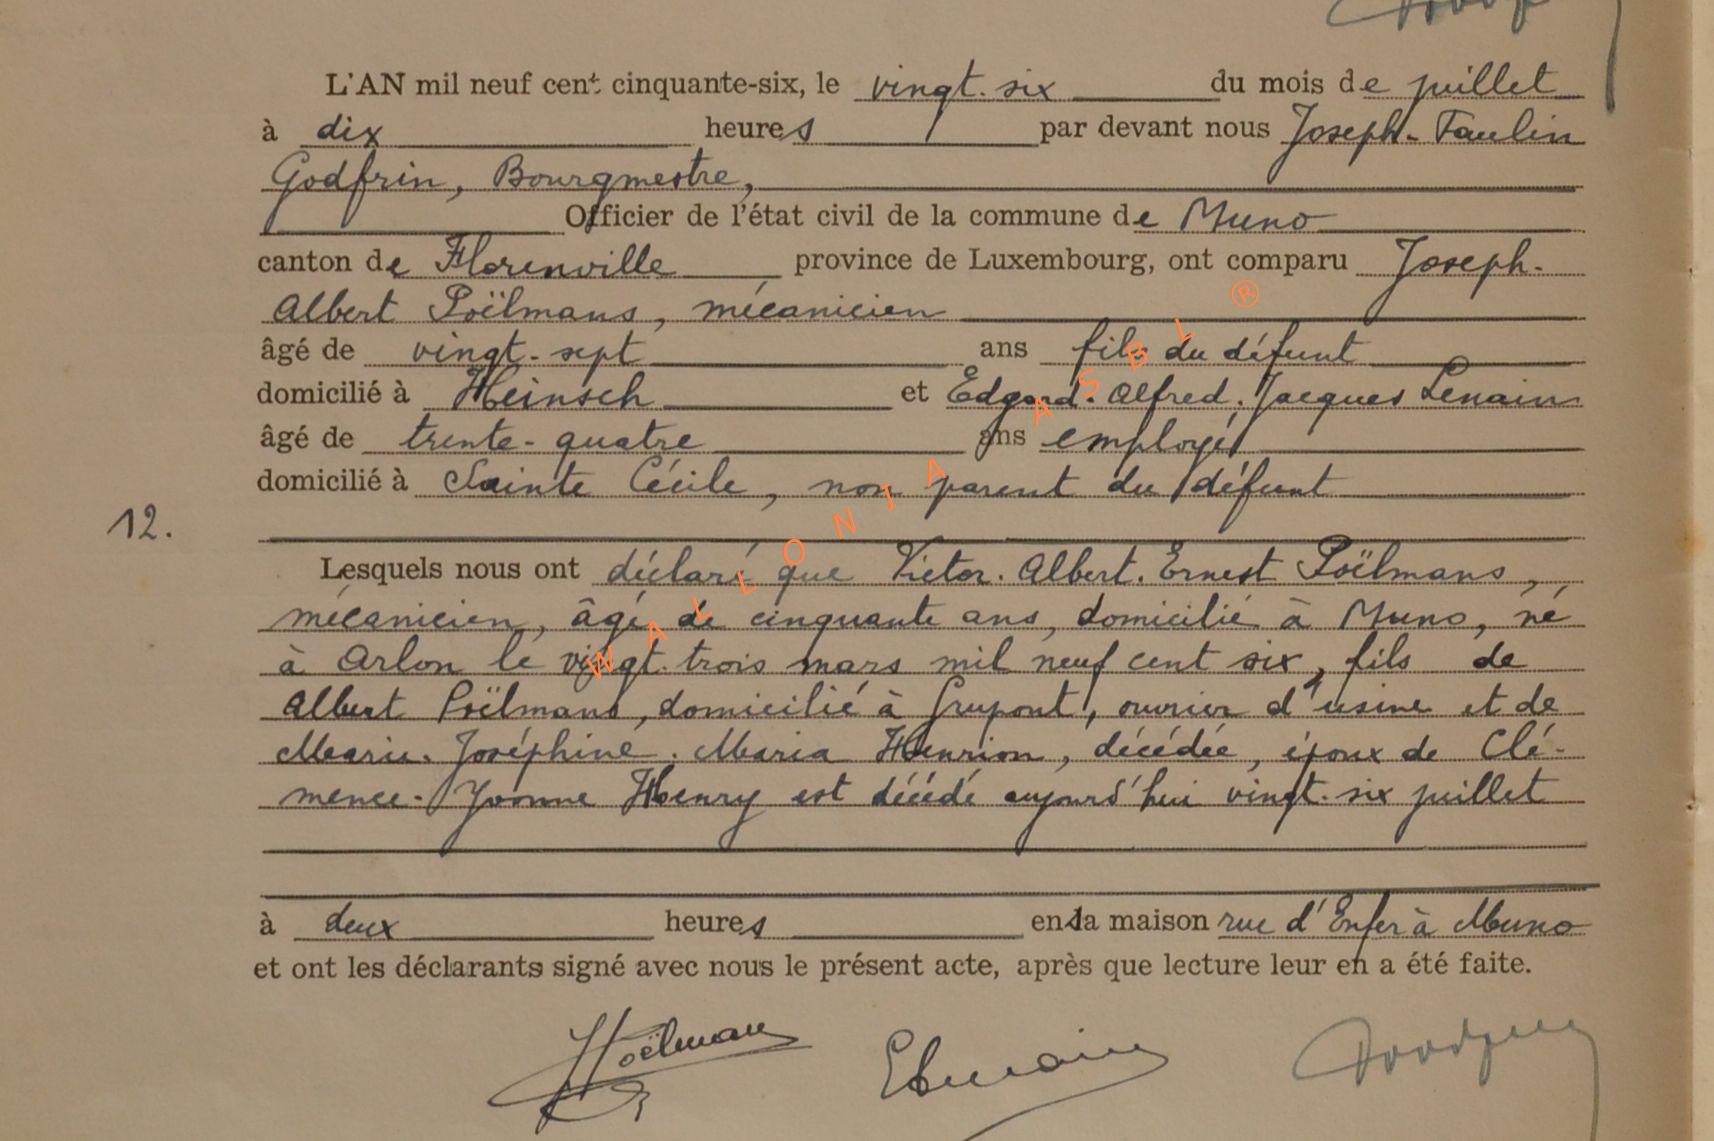 L'AN mil neuf cent cinquante-six, le vingt-six du mois de juillet
à dix heures par devant nous Joseph-Paulin
Godfrin, Bourgmestre,
Officier de l'état civil de la commune de Muno
canton de Florenville province de Luxembourg, ont comparu Joseph-
Albert Poëlmans, mécanicien
âgé de vingt-sept ans fils du défunt
domicilié à Heinsch et Edgard-Alfred-Jacques Lenain
âgé de trente-quatre ans employé
domicilié à Sainte Cécile, non parent du défunt
12.
Lesquels nous ont déclaré que Victor-Albert-Ernest Poëlmans,
mécanicien, âgé de cinquante ans, domicilié à Muno, né
à Arlon le vingt-trois mars mil neuf cent six, fils de
Albert Poëlmans, domicilié à Grupont, ouvrier d'usine et de
Marie-Joséphine-Maria Henrion, décédée, époux de Clé-
mence-Yvonne Henry est décédé aujourd'hui vingt-six juillet
à deux heures en la maison rue d'Enfer à Muno
et ont les déclarants signé avec nous le présent acte, après que lecture leur en a été faite.
Poëlmans ELenain Godfrin
WALLONIA ASBL ®